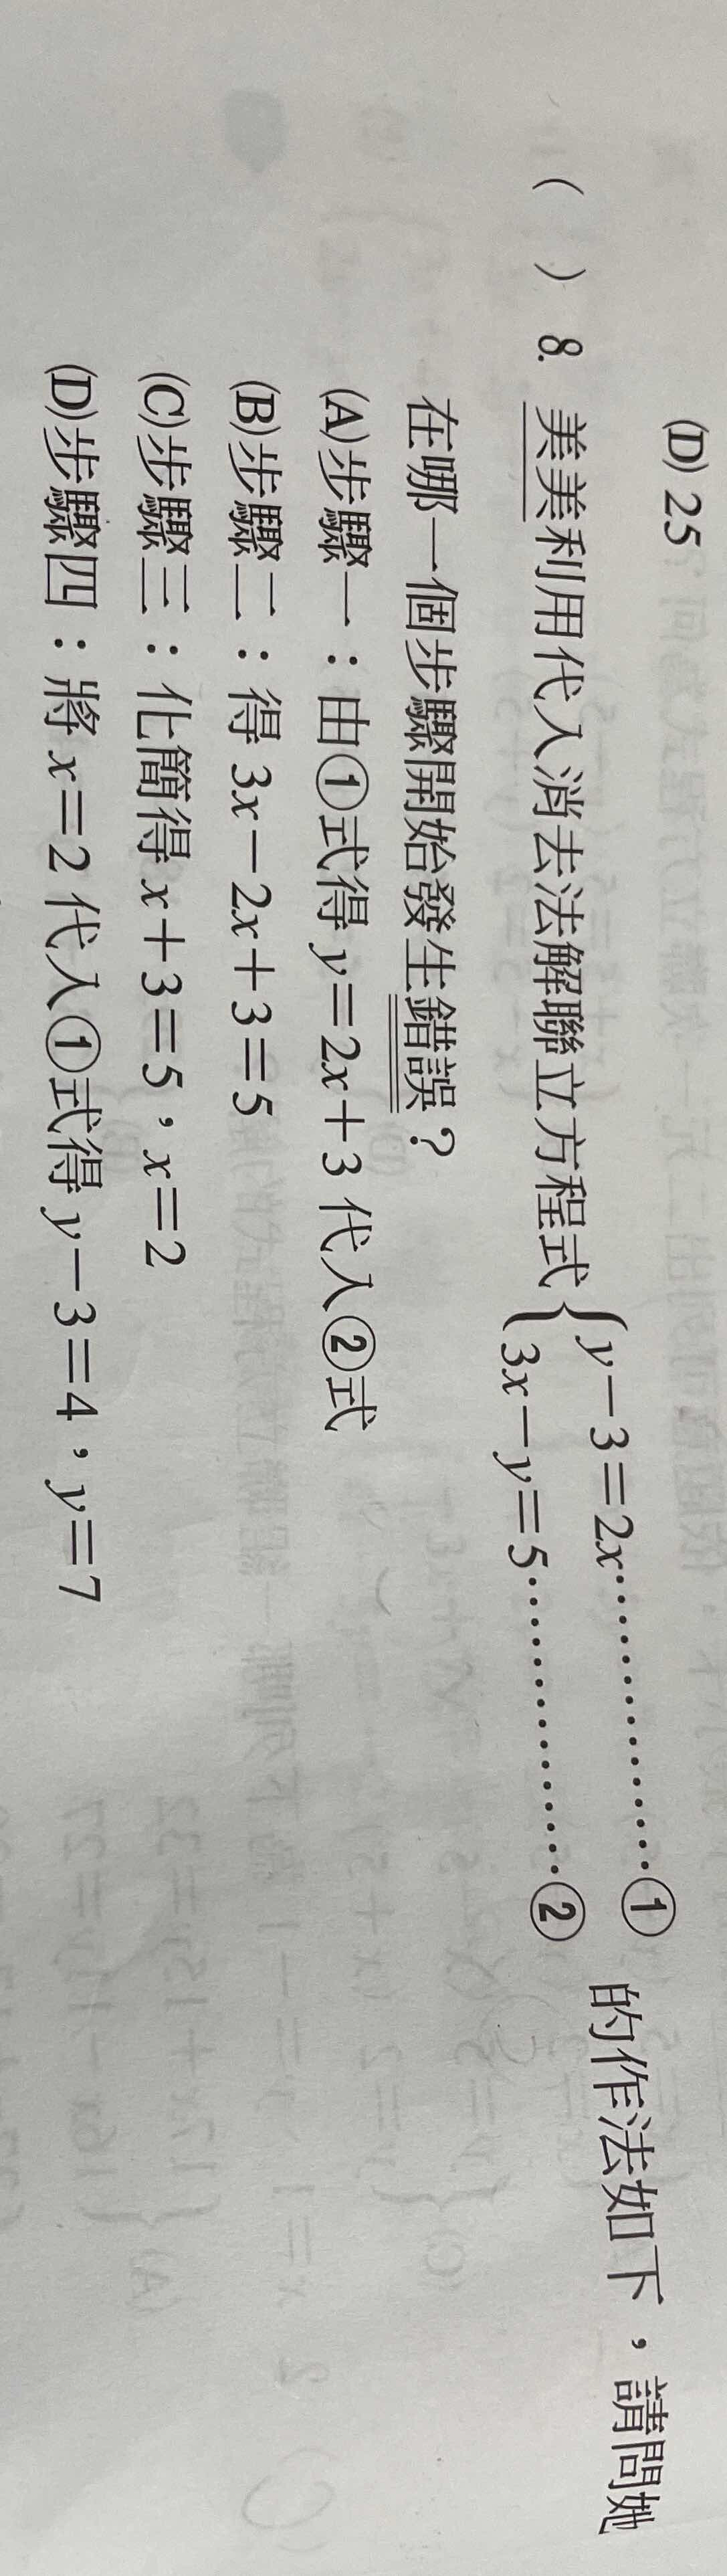 (D) 25
(　) 8. 美美利用代入消去法解聯立方程式{y－3＝2x⋯⋯⋯⋯⋯⋯① 的作法如下，請問她
3x－y＝5⋯⋯⋯⋯⋯⋯②
在哪一個步驟開始發生錯誤？
(A)步驟一：由①式得 y＝2x＋3 代入②式
(B)步驟二：得 3x－2x＋3＝5
(C)步驟三：化簡得 x＋3＝5，x＝2
(D)步驟四：將 x＝2 代入①式得 y－3＝4，y＝7